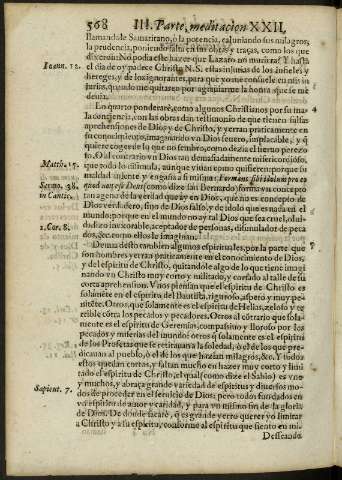 568 III. Parte, meditacion XXII.
llamandole Samaritano, ò la potencia, calumiando sus milagros,
la prudencia, poniendo falta en sus obras y traças, como los que
Ioann. 12. dixeron: No podia este hazer que Lazaro no muriera? Y hasta
el dia de oy padece Christo N. S. estas injurias de los infieles y
hereges, y de los ignorantes, para que yo me consuele en mis in-
jurias, quando me quitaren por agraviarme la honra que se me
devia.
En quarto ponderarè, como algunos Christianos por su ma- 4
la conciencia, con las obras dan testimonio de que tienen falsas
aprehensiones de Dios y de Christo, y yerran practicamente en
su conocimiento, imaginando vn Dios severo, implacable, y q̃
quiere coger de lo que no sembro, como dezia el siervo perezo-
Matth. 25. so. O al contrario vn Dios tan demasiadamente misericordioso,
que todo lo disimula, aunque vivan como quisieren: porque su
maldad miente y engaña a si misma: Formans sibi idolum pro eo
Sermo. 38. quod non est Deus, como dize san Bernardo: forma vn concepto
in Cantic. tan ageno de la verdad que ay en Dios, que no es concepto de
Dios verdadero, sino de Dios falso, y de idolo que es nada en el
mundo: porque en el mundo no ay tal Dios que sea cruel, olvi-
1. Cor. 8. dadizo, inexorable, aceptador de personas, disimulador de peca-
dos, &c. como ellos le imaginan.
Demas desto tambien algunos espirituales, por la parte que
son hombres yerran practicamente en el conocimiento de Dios,
y del espiritu de Christo, quitandole algo de lo que tiene, imagi-
nandole vn Christo muy corto y limitado, y cortado al talle de su
corta aprehension. Vnos piensan que el espiritu de Christo es
solamente en el espiritu del Bautista, riguroso, aspero y muy pe-
nitente. Otros, que solamente es el espiritu de Helias, zeloso y te-
rrible côtra los pecados y pecadores. Otros al côtrario que sola-
mente es el espiritu de Geremias, compasivo y lloroso por los
pecados y miserias del mundo: otros q̃ solamente es el espiritu
de los Profetas que se retiravan a la soledad, ò el de los que pre-
dicauan al pueblo, ò el de los que hazian milagros, &c. Y todos
estos quedan cortos, y faltan mucho en hazer muy corto y limi-
tado el espiritu de Christo, el qual (como dize el Sabio) es vno
Sapient. 7. y muchos, y abraça grande variedad de espiritus y diversos mo-
dos de proceder en el servicio de Dios; pero todos fundados en
vn espiritu de amor y caridad, y para vn mismo fin de la gloria
de Dios. De donde sacarè, q̃ es grande yerro querer yo limitar
a Christo y a su espiritu, conforme al espiritu que siento en mi.
Desseando